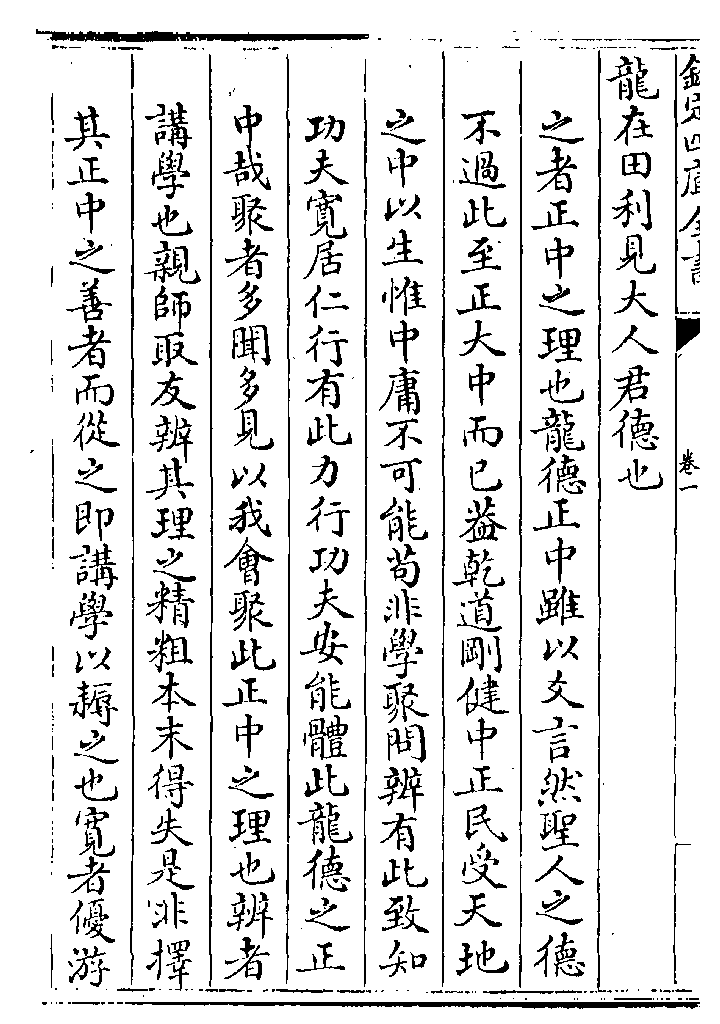 欽定四庫全書
卷一
龍在田利見大人君德也
之者正中之理也龍德正中雖以爻言然聖人之德
不過此至正大中而已葢乾道剛健中正民受天地
之中以生惟中庸不可能茍非學聚問辨有此致知
功夫寛居仁行有此力行功夫安能體此龍德之正
中哉聚者多聞多見以我會聚此正中之理也辨者
講學也親師取友辨其理之精粗本末得失是非擇
其正中之善者而從之即講學以耨之也寛者優游